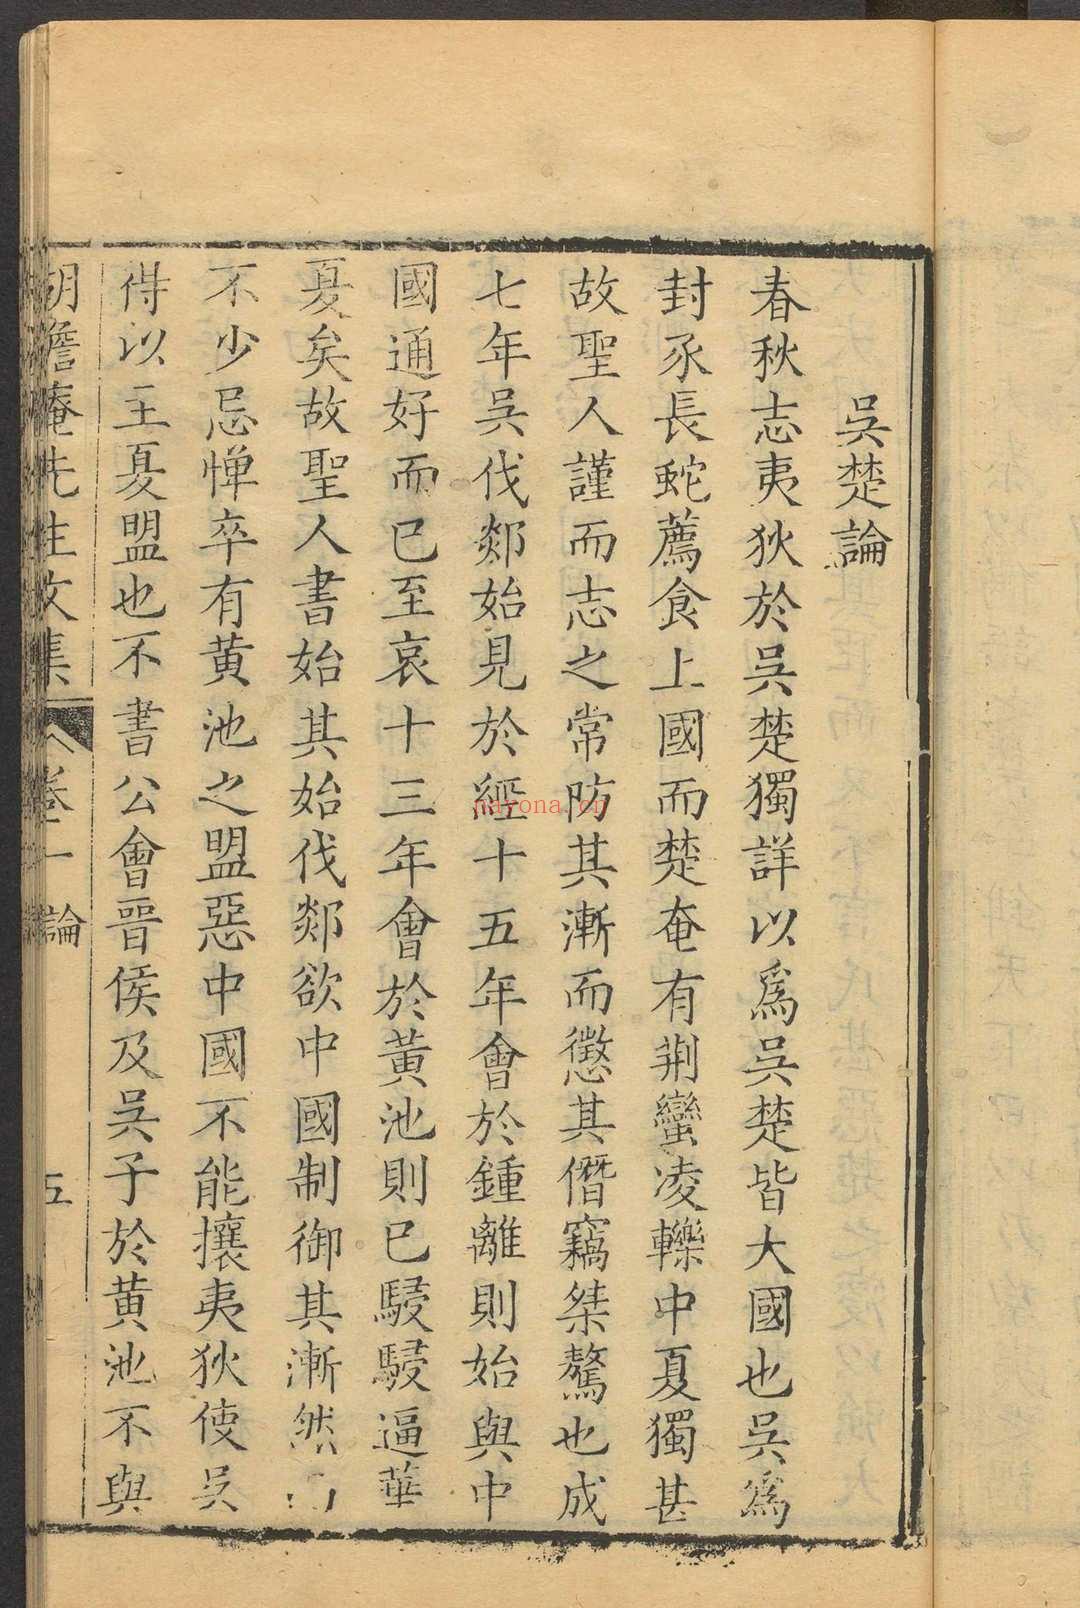 吳楚論
春秋志夷狄於吳楚獨詳以爲吳楚皆大國也吳爲
封豕長蛇薦食上國而楚奄有荆蠻凌轢中夏獨甚
故聖人謹而志之常防其漸而懲其僭竊桀驁也成
七年吳伐郯始見於經十五年會於鍾離則始與中
國通好而已至哀十三年會於黃池則已駸駸逼華
夏矣故聖人書始其始伐郯欲中國制御其漸然而
不少忌憚卒有黃池之盟惡中國不能攘夷狄使吳
得以主夏盟也不書公會晉侯及吳子於黃池不與
胡澹庵先生文集 卷一 論 五
nayona.cn